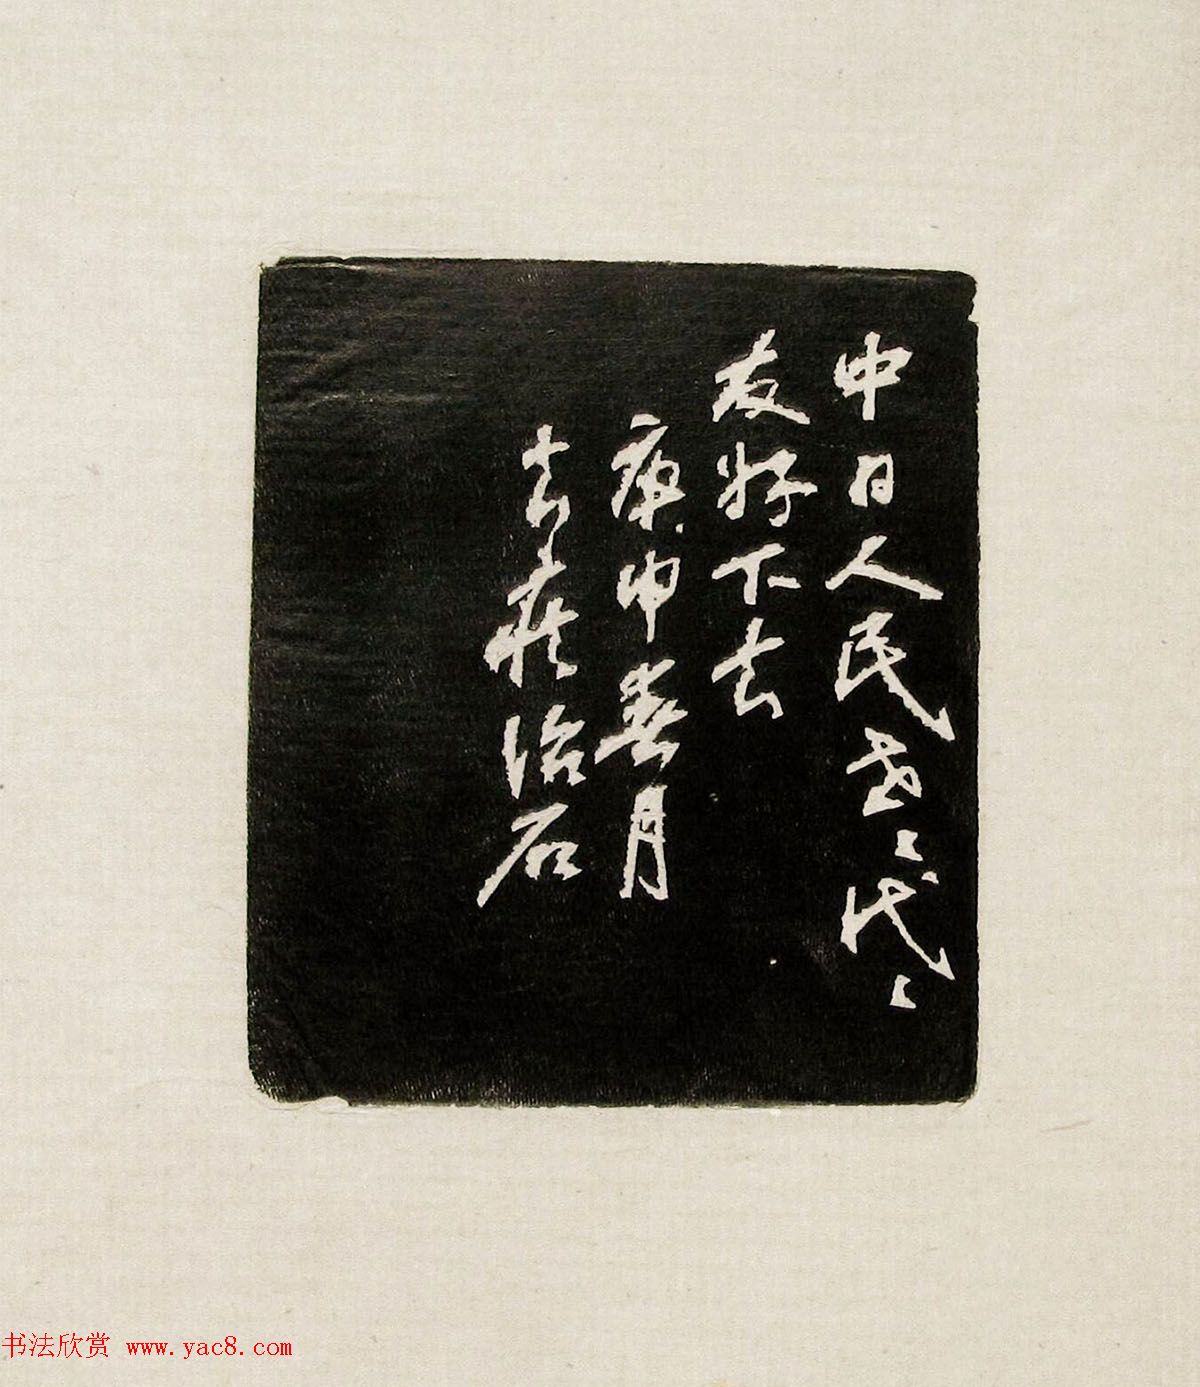 中日人民世〻代〻
友好下去
庚申春月
去疾治石
书法欣赏 www.yac8.com